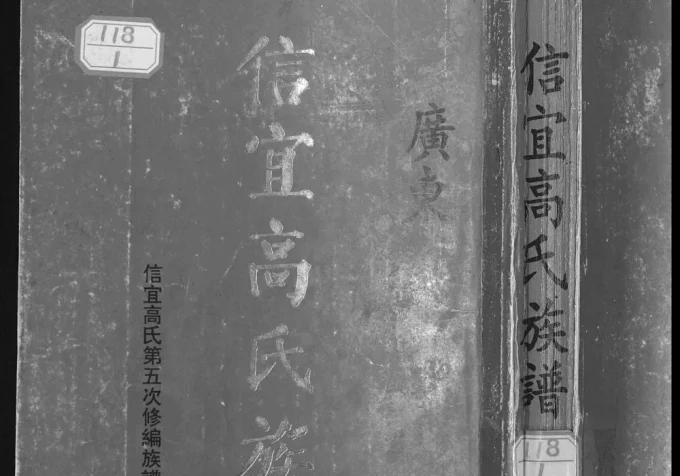 信宜高氏族譜
118
廣東
信宜高氏族
信宜高氏第五次修編族譜
118
1